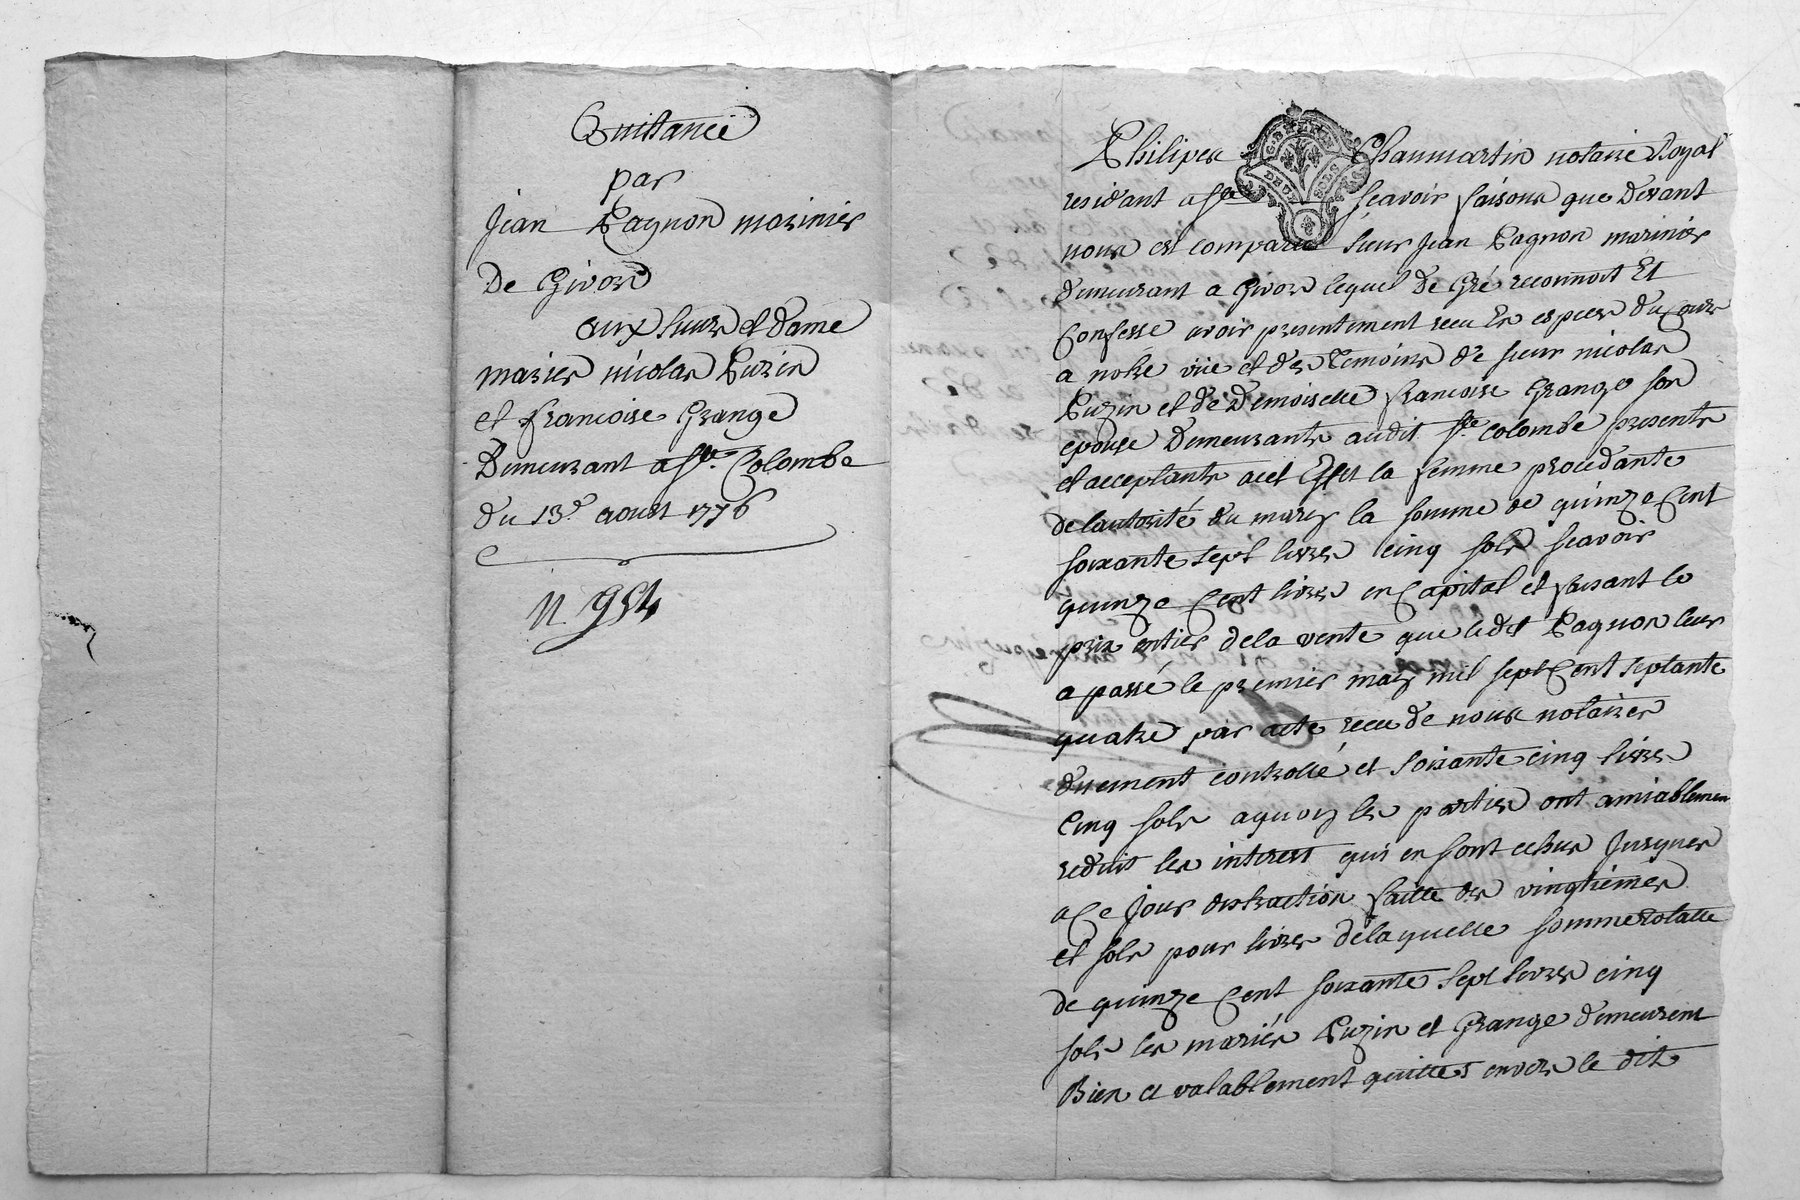 Quittance
par
Jean Pagnon marinier
De Givors
aux sieur et dame
mariés nicolas Puzin
et francoise Grange
Demeurant a Ste. Colombe
du 13e aoust 1776
N 954
Philipes Chaumartin notaire Royal
residant a Ste scavoir faisons que Devant
nous est comparu sieur Jean Pagnon marinier
demeurant a Givors lequel De Gré reconnoit Et
Confesse avoir presentement recu En especes du Cours
a notre vüe et des temoins de sieur nicolas
Puzin et de Demoiselle francoise Grange son
epouse Demeurants audit Ste colombe presents
et acceptants a cet Effet la femme procedante
de lautorité du mary la somme de quinze Cent
soixante sept livres cinq sols scavoir
quinze Cent livres en Capital et faisant le
prix entier de la vente que ledit Pagnon leur
a passé le premier may mil sept Cent septante
quatre par acte recu de nous notaires
duement controllé et soixante cinq livres
Cinq sols a quoy les parties ont amiablement
reduit les interest qui en sont echus Jusques
a Ce Jour distraction faitte des vingtiemes
et sols pour livres de laquelle somme totalle
de quinze Cent soixante sept livres cinq
sols les mariés Puzin et Grange demeurent
Bien et valablement quittes envers le dit
G. DE LYON
DEUX SOLS